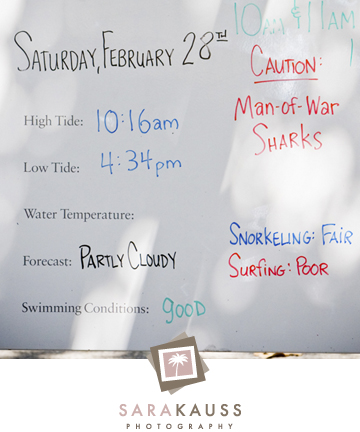 10am & 11am
SATURDAY, FEBRUARY 28TH
CAUTION:
Man-of-War
SHARKS
High Tide: 10:16am
Low Tide: 4:34pm
Water Temperature:
Snorkeling: Fair
Forecast: PARTLY CLOUDY
Surfing: Poor
Swimming Conditions: good
SARAKAUSS
PHOTOGRAPHY